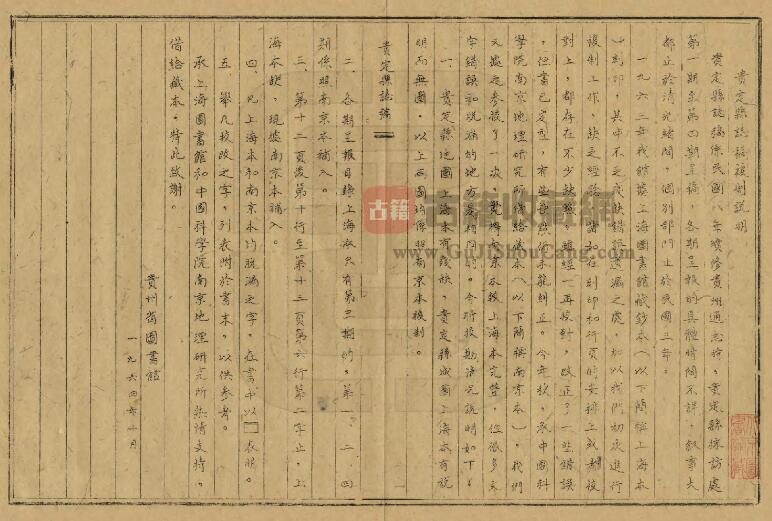 貴定縣誌稿複制說明
貴定縣誌稿係民國八年續修貴州通志時，貴定縣採訪處
第一期至第四期呈稿，各期呈報的具體時間不詳，敘事大
都止於清光緒間，個別部門止於民國三年。
一九六二年我館據上海圖書館藏鈔本（以下簡稱上海本
）刻印，其中不乏殘缺錯訛遺漏之處，加以我們初次進行
複制工作，缺乏經驗，諸如在刻印和行頁的安排上或者校
對上，都存在不少缺點，雖經一再校對，改正了一些錯誤
，但書已定型，有些缺點仍未能糾正。今年秋，承中國科
學院南京地理研究所借給藏本（以下簡稱南京本），我們
又據之參校了一次，覺得南京本較上海本完整，但很多文
字錯誤和脫漏的地方是相同的。今將校勘情況說明如下：
一、貴定縣地圖上海本有殘缺，貴定縣城圖上海本有說
明而無圖，以上兩圖均係照南京本複制。
貴定縣誌稿
二、各期呈報目錄上海本只有第三期的，第一、二、四
期係照南京本補入。
三、第十二頁後第十行至第十三頁第六行第二字止，上
海本缺，現據南京本補入。
四、凡上海本和南京本均脫漏之字，在書中以□表明。
五、舉凡校改之字，列表附於書末，以供參考。
承上海圖書館和中國科學院南京地理研究所熱情支持，
借給藏本，特此致謝。
貴州省圖書館
一九六四年十月
古籍
古籍收藏網
www.GuJiShouCang.com